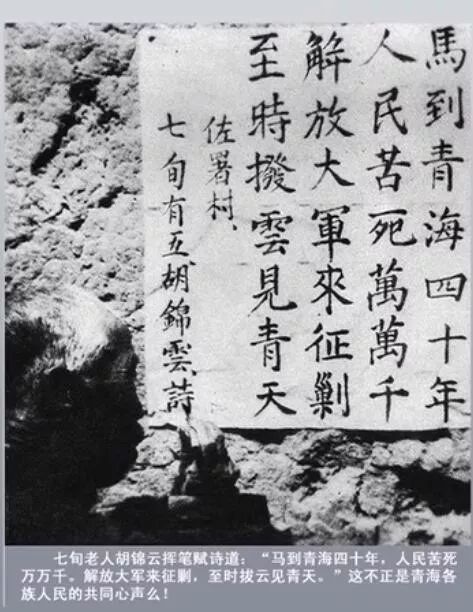 馬到青海四十年
人民苦死萬萬千
解放大軍來征剿
至時撥雲見青天
佐署村、
七旬有五胡錦雲詩
七旬老人胡锦云挥笔赋诗道：“马到青海四十年，人民苦死
万万千。解放大军来征剿，至时拔云见青天。”这不正是青海各
族人民的共同心声么！